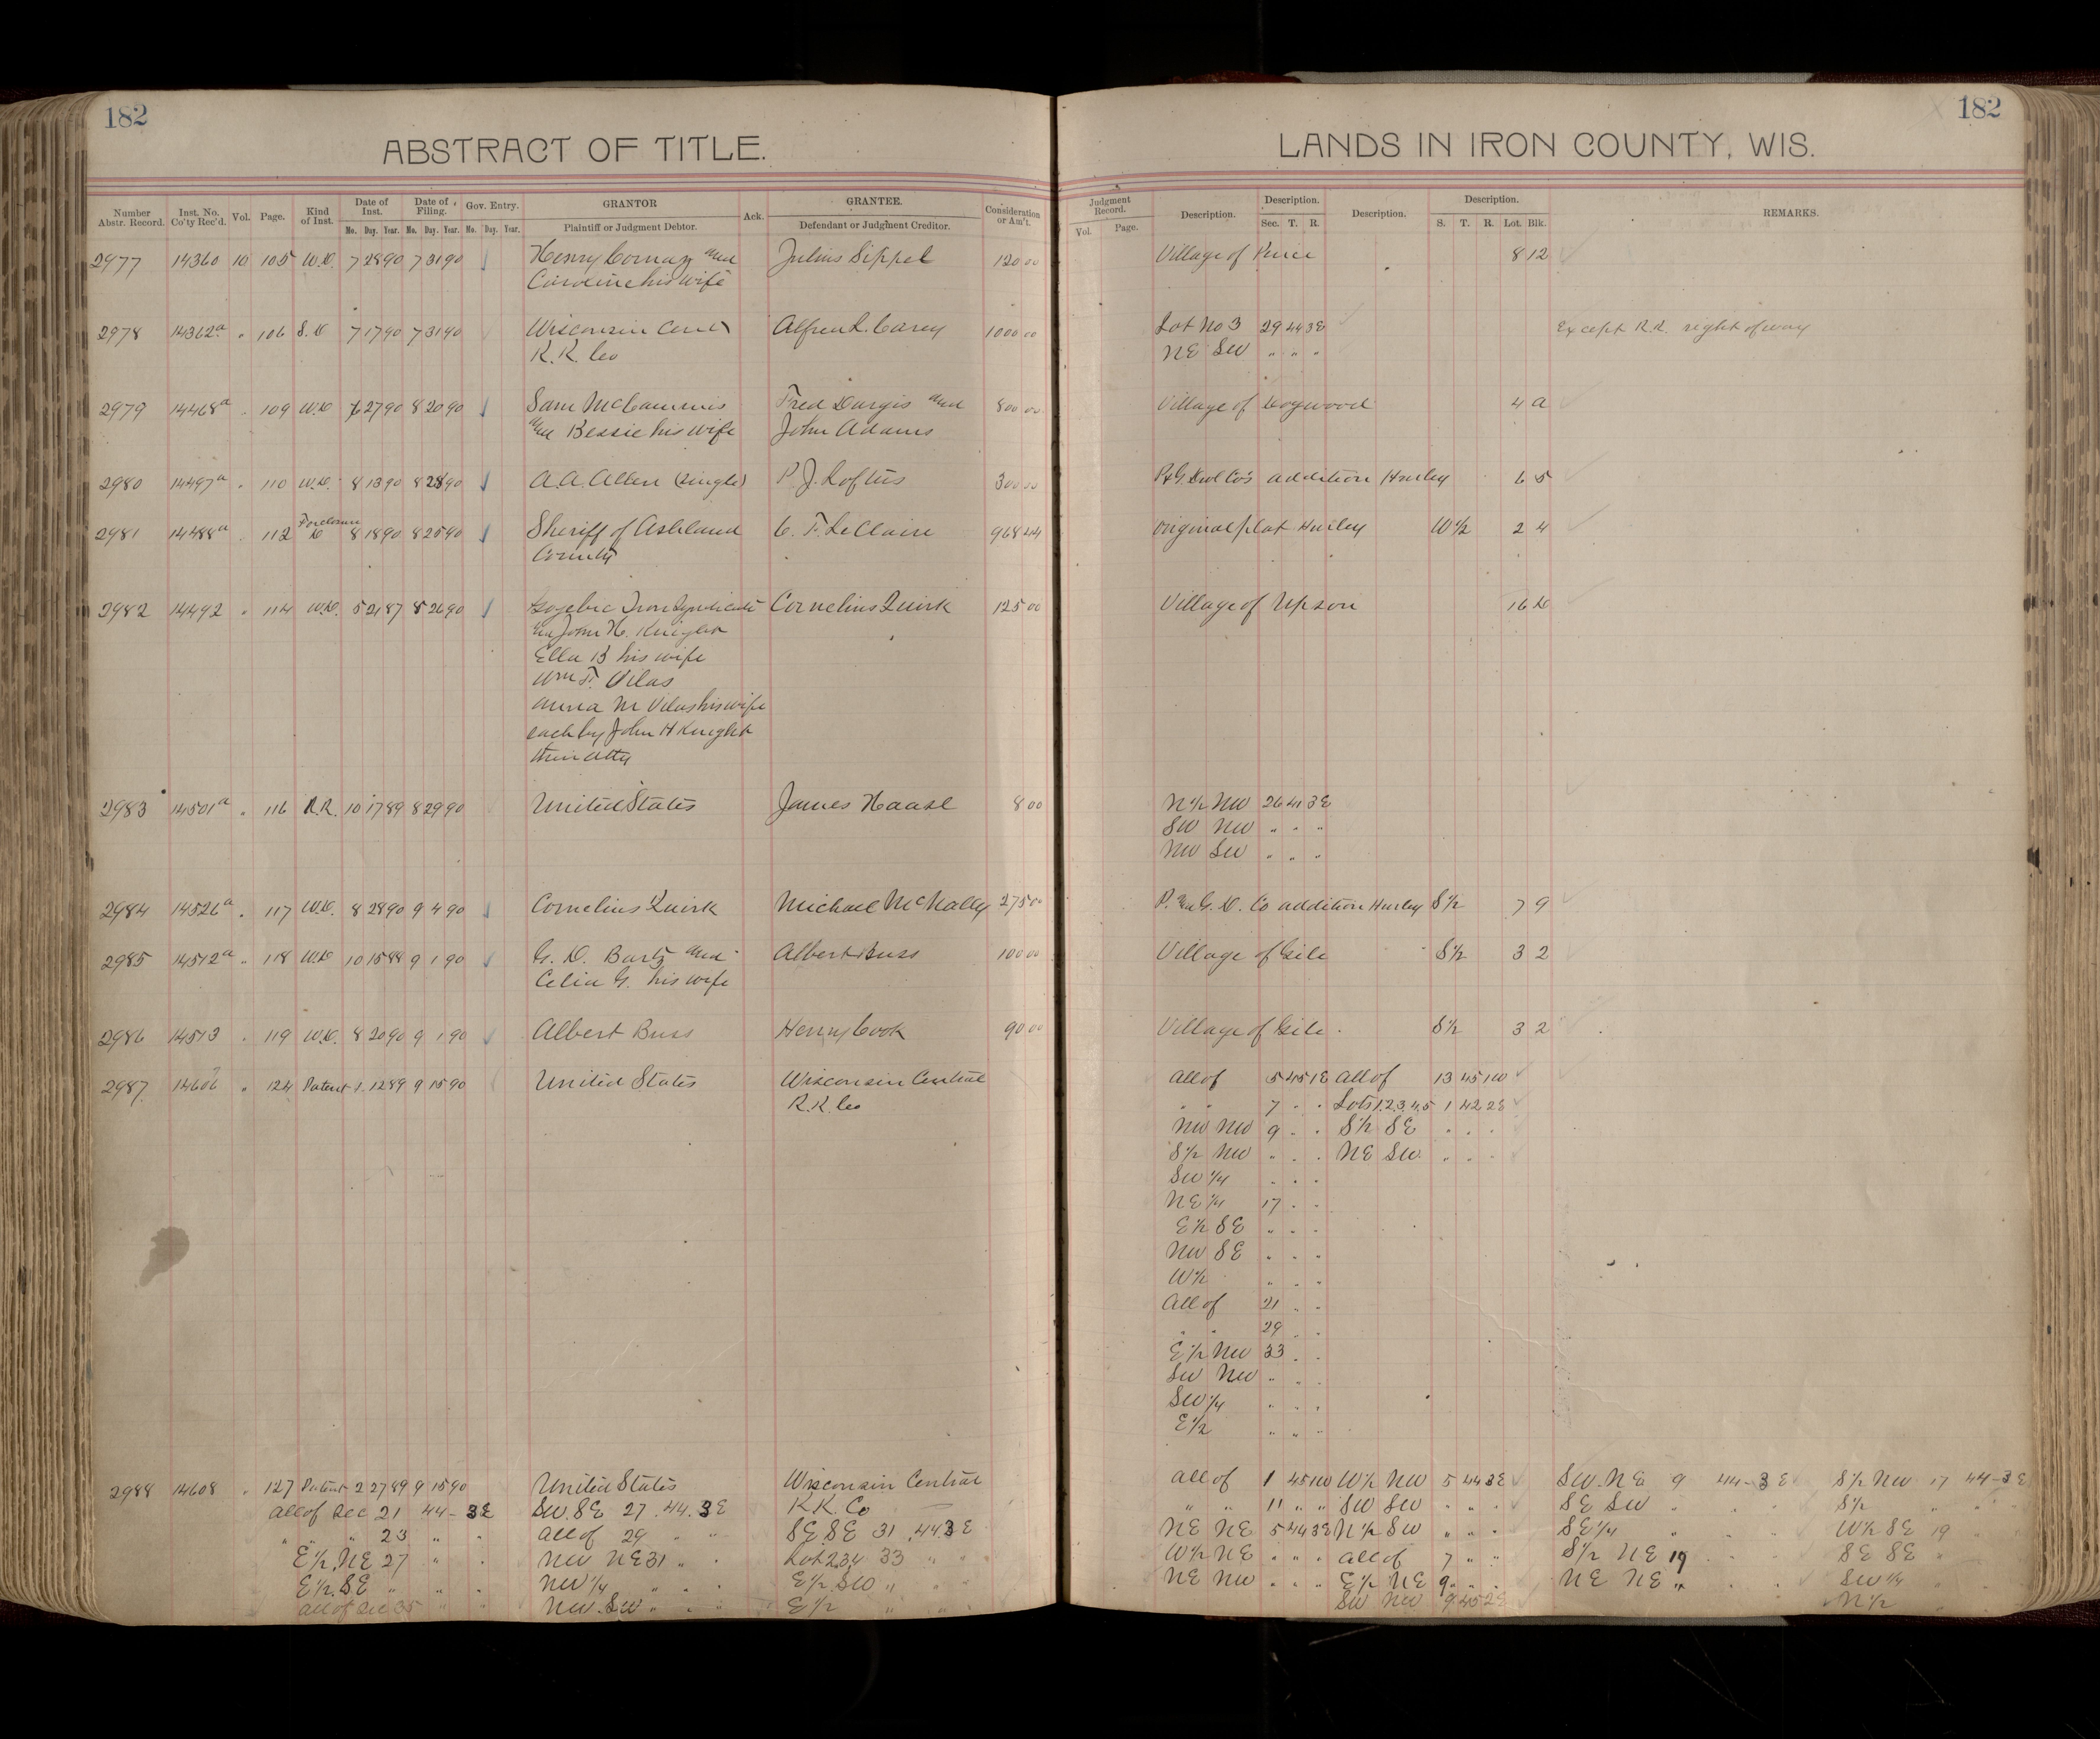 182
182
ABSTRACT OF TITLE.
LANDS IN IRON COUNTY, WIS.
Number Abstr. Record. Inst. No. Co'ty Rec'd. Vol. Page. Kind of Inst. Date of Inst. Date of Filing. Gov. Entry. GRANTOR Ack. GRANTEE. Consideration or Am't.
Mo. Day. Year. Mo. Day. Year. Mo. Day. Year. Plaintiff or Judgment Debtor. Defendant or Judgment Creditor.
Judgment Record. Description. Description. Description. Description. REMARKS.
Vol. Page. Sec. T. R. S. T. R. Lot. Blk.
2977 14360 10 105 W.D. 7 28 90 7 31 90 Henry and Julius Sippel 120 00 Village of 8 12
Caroline his wife
2978 14362a " 106 S.D 7 17 90 7 31 90 Wisconsin Cent Alfred L. Carey 1000 00 Lot No 3 29 44 3E Except R.R. right of way
R.R. Co NE SW " " "
2979 14468a " 109 W.D 7 27 90 8 20 90 Sam McCammis Fred Dargis and 800 00 Village of Hogwood 4 A
and Bessie his wife John Adams
2980 14497a " 110 W.D. 8 13 90 8 28 90 A.A. Allen (Single) P.J. Loftus 300 00 addition Hurley 6 5
2981 14488a " 112 Foreclosure D 8 18 90 8 25 90 Sheriff of Ashland C. F. LeClaire 968 44 Original plat Hurley W 1/2 2 4
County
2982 14492 " 114 W.D. 5 21 87 8 26 90 Gogebic Iron Syndicate Cornelius Quirk 125 00 Village of Upson 16 D
John H. Knight
Ella B his wife
Wm F. Vilas
Anna M Vilas his wife
each by John H Knight
their atty
2983 14501a " 116 R.R. 10 17 89 8 29 90 United States James Haase 8 00 N 1/2 NW 26 41 3E
SW NW " " "
NW SW " " "
2984 14526a " 117 W.D. 8 28 90 9 4 90 Cornelius Quirk Michael McNally 275 00 P. and G. D. Co addition Hurley S 1/2 7 9
2985 14512a " 118 W.D 10 15 88 9 1 90 G. D. Bartz and Albert Buss 100 00 Village of Gile S 1/2 3 2
Celia G. his wife
2986 14513 " 119 W.D. 8 20 90 9 1 90 Albert Buss Henry Cook 90 00 Village of Gile S 1/2 3 2
2987 14606 " 124 Patent 1 12 89 9 15 90 United States Wisconsin Central All of 5 45 1E All of 13 45 1W
R.R. Co " " 7 " " Lots 1.2.3.4.5 1 42 2E
NW NW 9 " " S 1/2 SE " " "
S 1/2 NW " " " NE SW " " "
SW 1/4 " " "
NE 1/4 17 " "
E 1/2 SE " " "
NW SE " " "
W 1/2 " " "
All of 21 " "
" " 29 " "
E 1/2 NW 33 " "
SW NW " " "
SW 1/4 " " "
E 1/2 " " "
2988 14608 " 127 Patent 2 27 89 9 15 90 United States Wisconsin Central All of 1 45 1W W 1/2 NW 5 44 3E SW. NE 9 44-3E S 1/2 NW 17 44-3E
All of Sec 21 44-3E SW. SE 27 44.3E R.R. Co " " 11 " " SW SW " " " SE SW " " " S 1/2 " " "
" " " 23 " " All of 29 " " SE. SE 31 44.3E NE NE 5 44 3E N 1/2 SW " " " SE 1/4 " " " W 1/2 SE 19 "
E 1/2. NE 27 " " NW NE 31 " " Lot 2.3.4 33 " " W 1/2 NE " " " All of 7 " " S 1/2 NE 19 " " SE SE " "
E 1/2. SE " " " NW 1/4 " " " E 1/2. SW " " " NE NW " " " E 1/2 NE 9 " " NE NE " " " SW 1/4 " "
All of Sec 35 " " NW. SW " " " E 1/2 " " " SW NW 9 45 2E N 1/2 " "